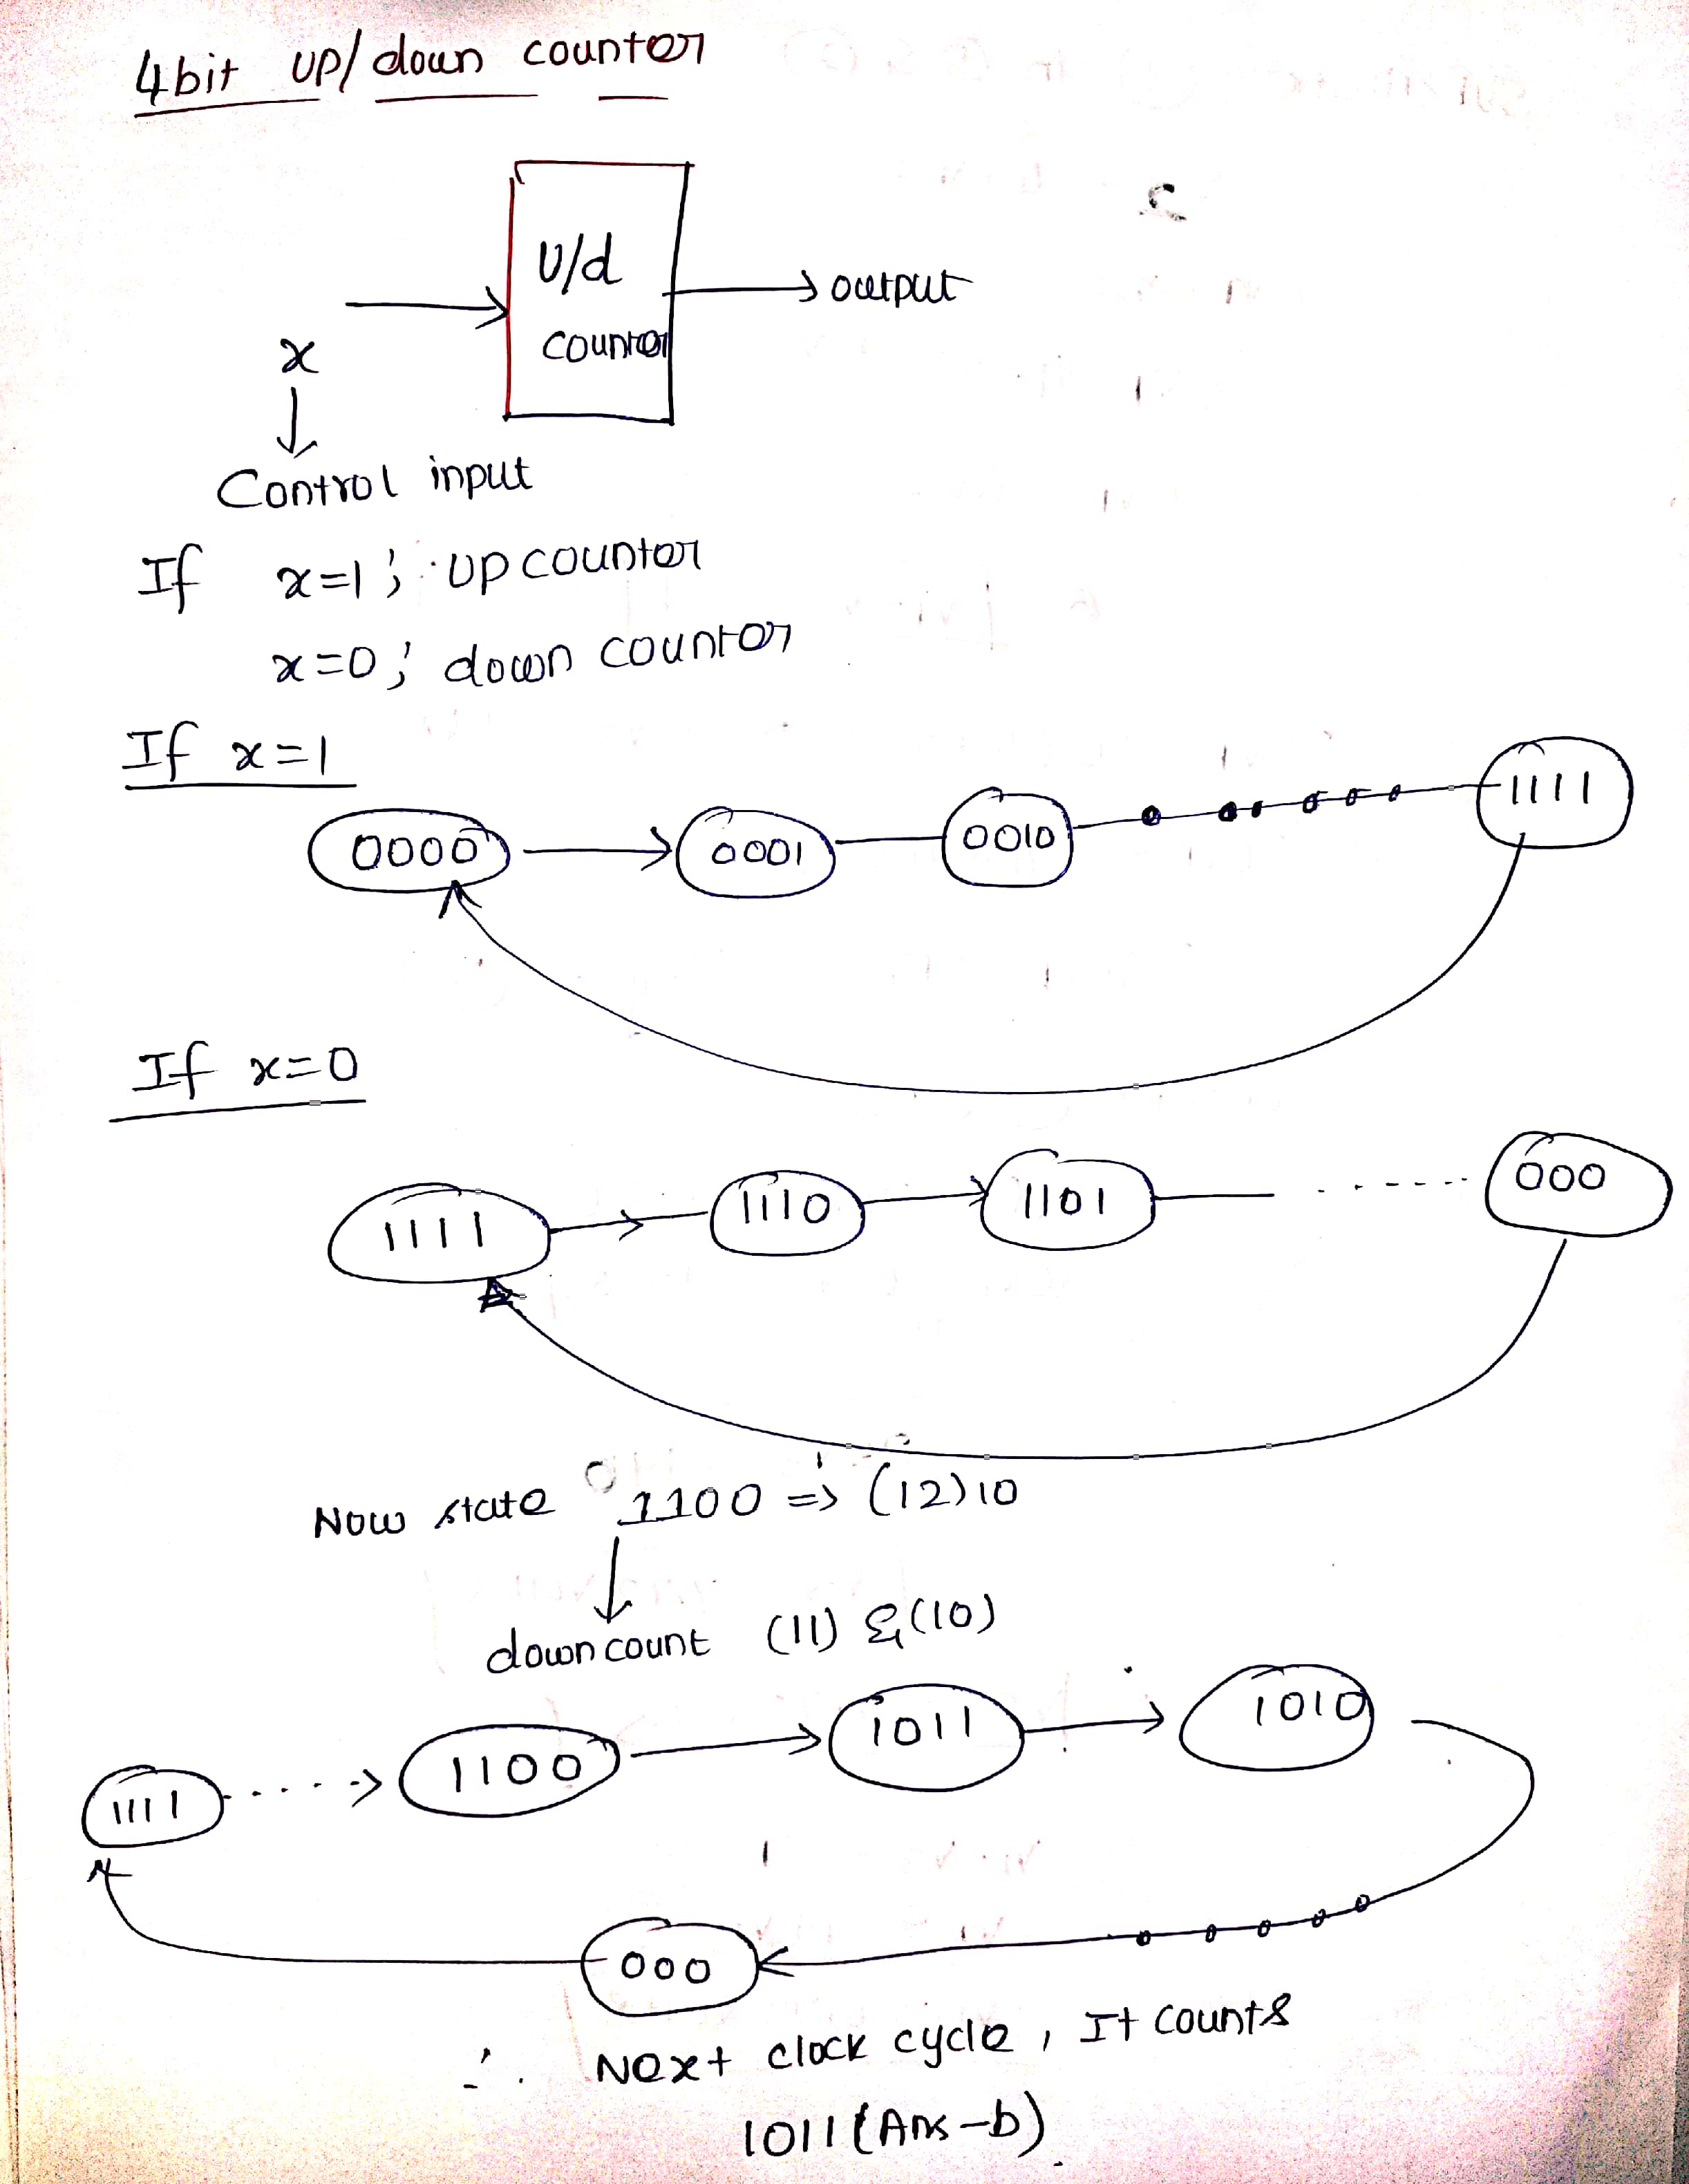 4bit up/down counter
U/d
counter
output
x
Control input
If x=1; up counter
x=0; down counter
If x=1
0000 0001 0010 1111
If x=0
1111 1110 1101 000
Now state 1100 => (12)10
down count (11) & (10)
1111 1100 1011 1010
000
∴ Next clock cycle, It counts
1011 (Ans-b).